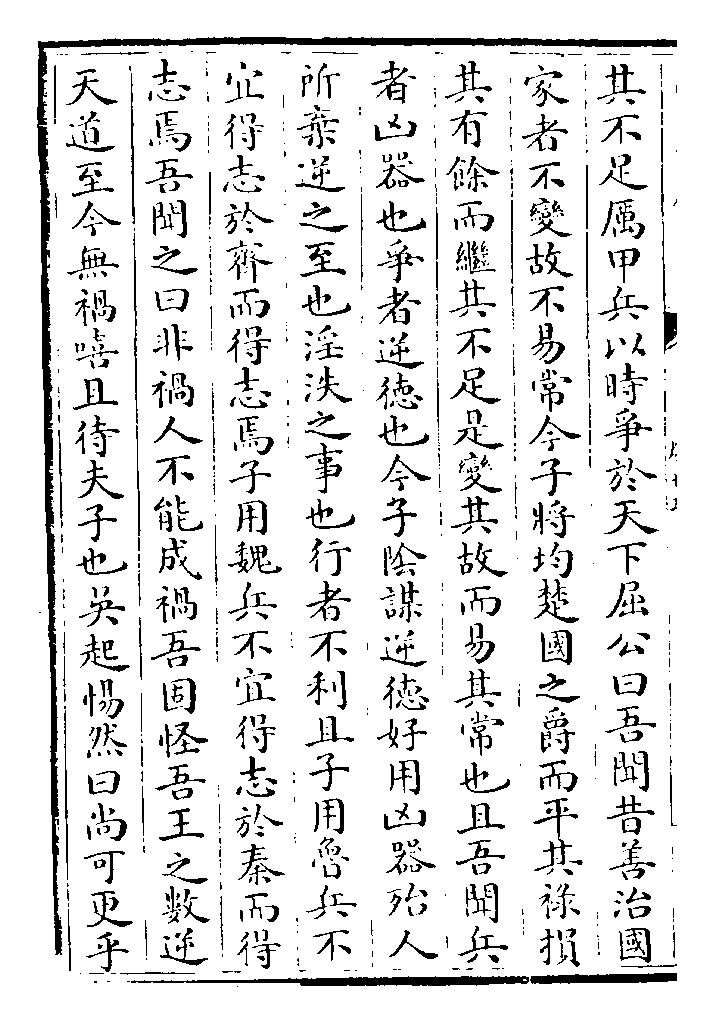 其不足厲甲兵以時爭於天下屈公曰吾聞昔善治國
家者不變故不易常今子將均楚國之爵而平其祿損
其有餘而繼其不足是變其故而易其常也且吾聞兵
者凶器也爭者逆德也今子陰謀逆德好用凶器殆人
所棄逆之至也淫泆之事也行者不利且子用魯兵不
宜得志於齊而得志焉子用魏兵不宜得志於秦而得
志焉吾聞之曰非禍人不能成禍吾固怪吾王之數逆
天道至今無禍嘻且待夫子也吳起惕然曰尚可更乎